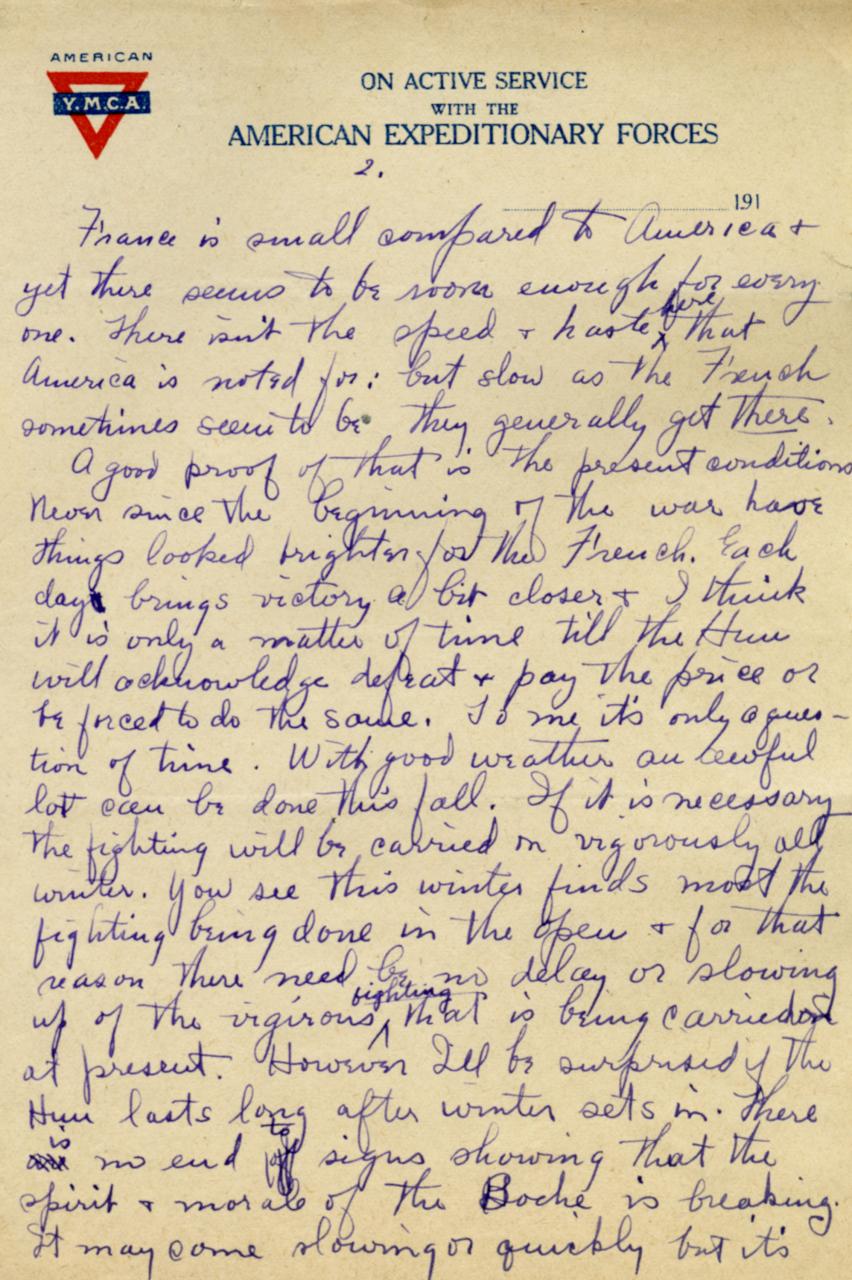 AMERICAN
Y.M.C.A.
ON ACTIVE SERVICE
WITH THE
AMERICAN EXPEDITIONARY FORCES
2.
191
France is small compared to America +
yet there seems to be room enough for every
one. There isn't the speed + haste here that
America is noted for: but slow as the French
sometimes seem to be they generally get there.
A good proof of that is the present conditions
Never since the beginning of the war have
things looked brighter for the French. Each
day brings victory a bit closer + I think
it is only a matter of time till the Hun
will acknowledge defeat + pay the price or
be forced to do the same. To me it's only a ques-
tion of time. With good weather an awful
lot can be done this fall. If it is necessary
the fighting will be carried on vigorously all
winter. You see this winter finds most the
fighting being done in the open + for that
reason there need be no delay or slowing
up of the vigirous fighting that is being carried on
at present. However I'll be surprised if the
Hun lasts long after winter sets in. There
is no end to signs showing that the
spirit + morale of the Boche is breaking.
It may come slowing or quickly but it's